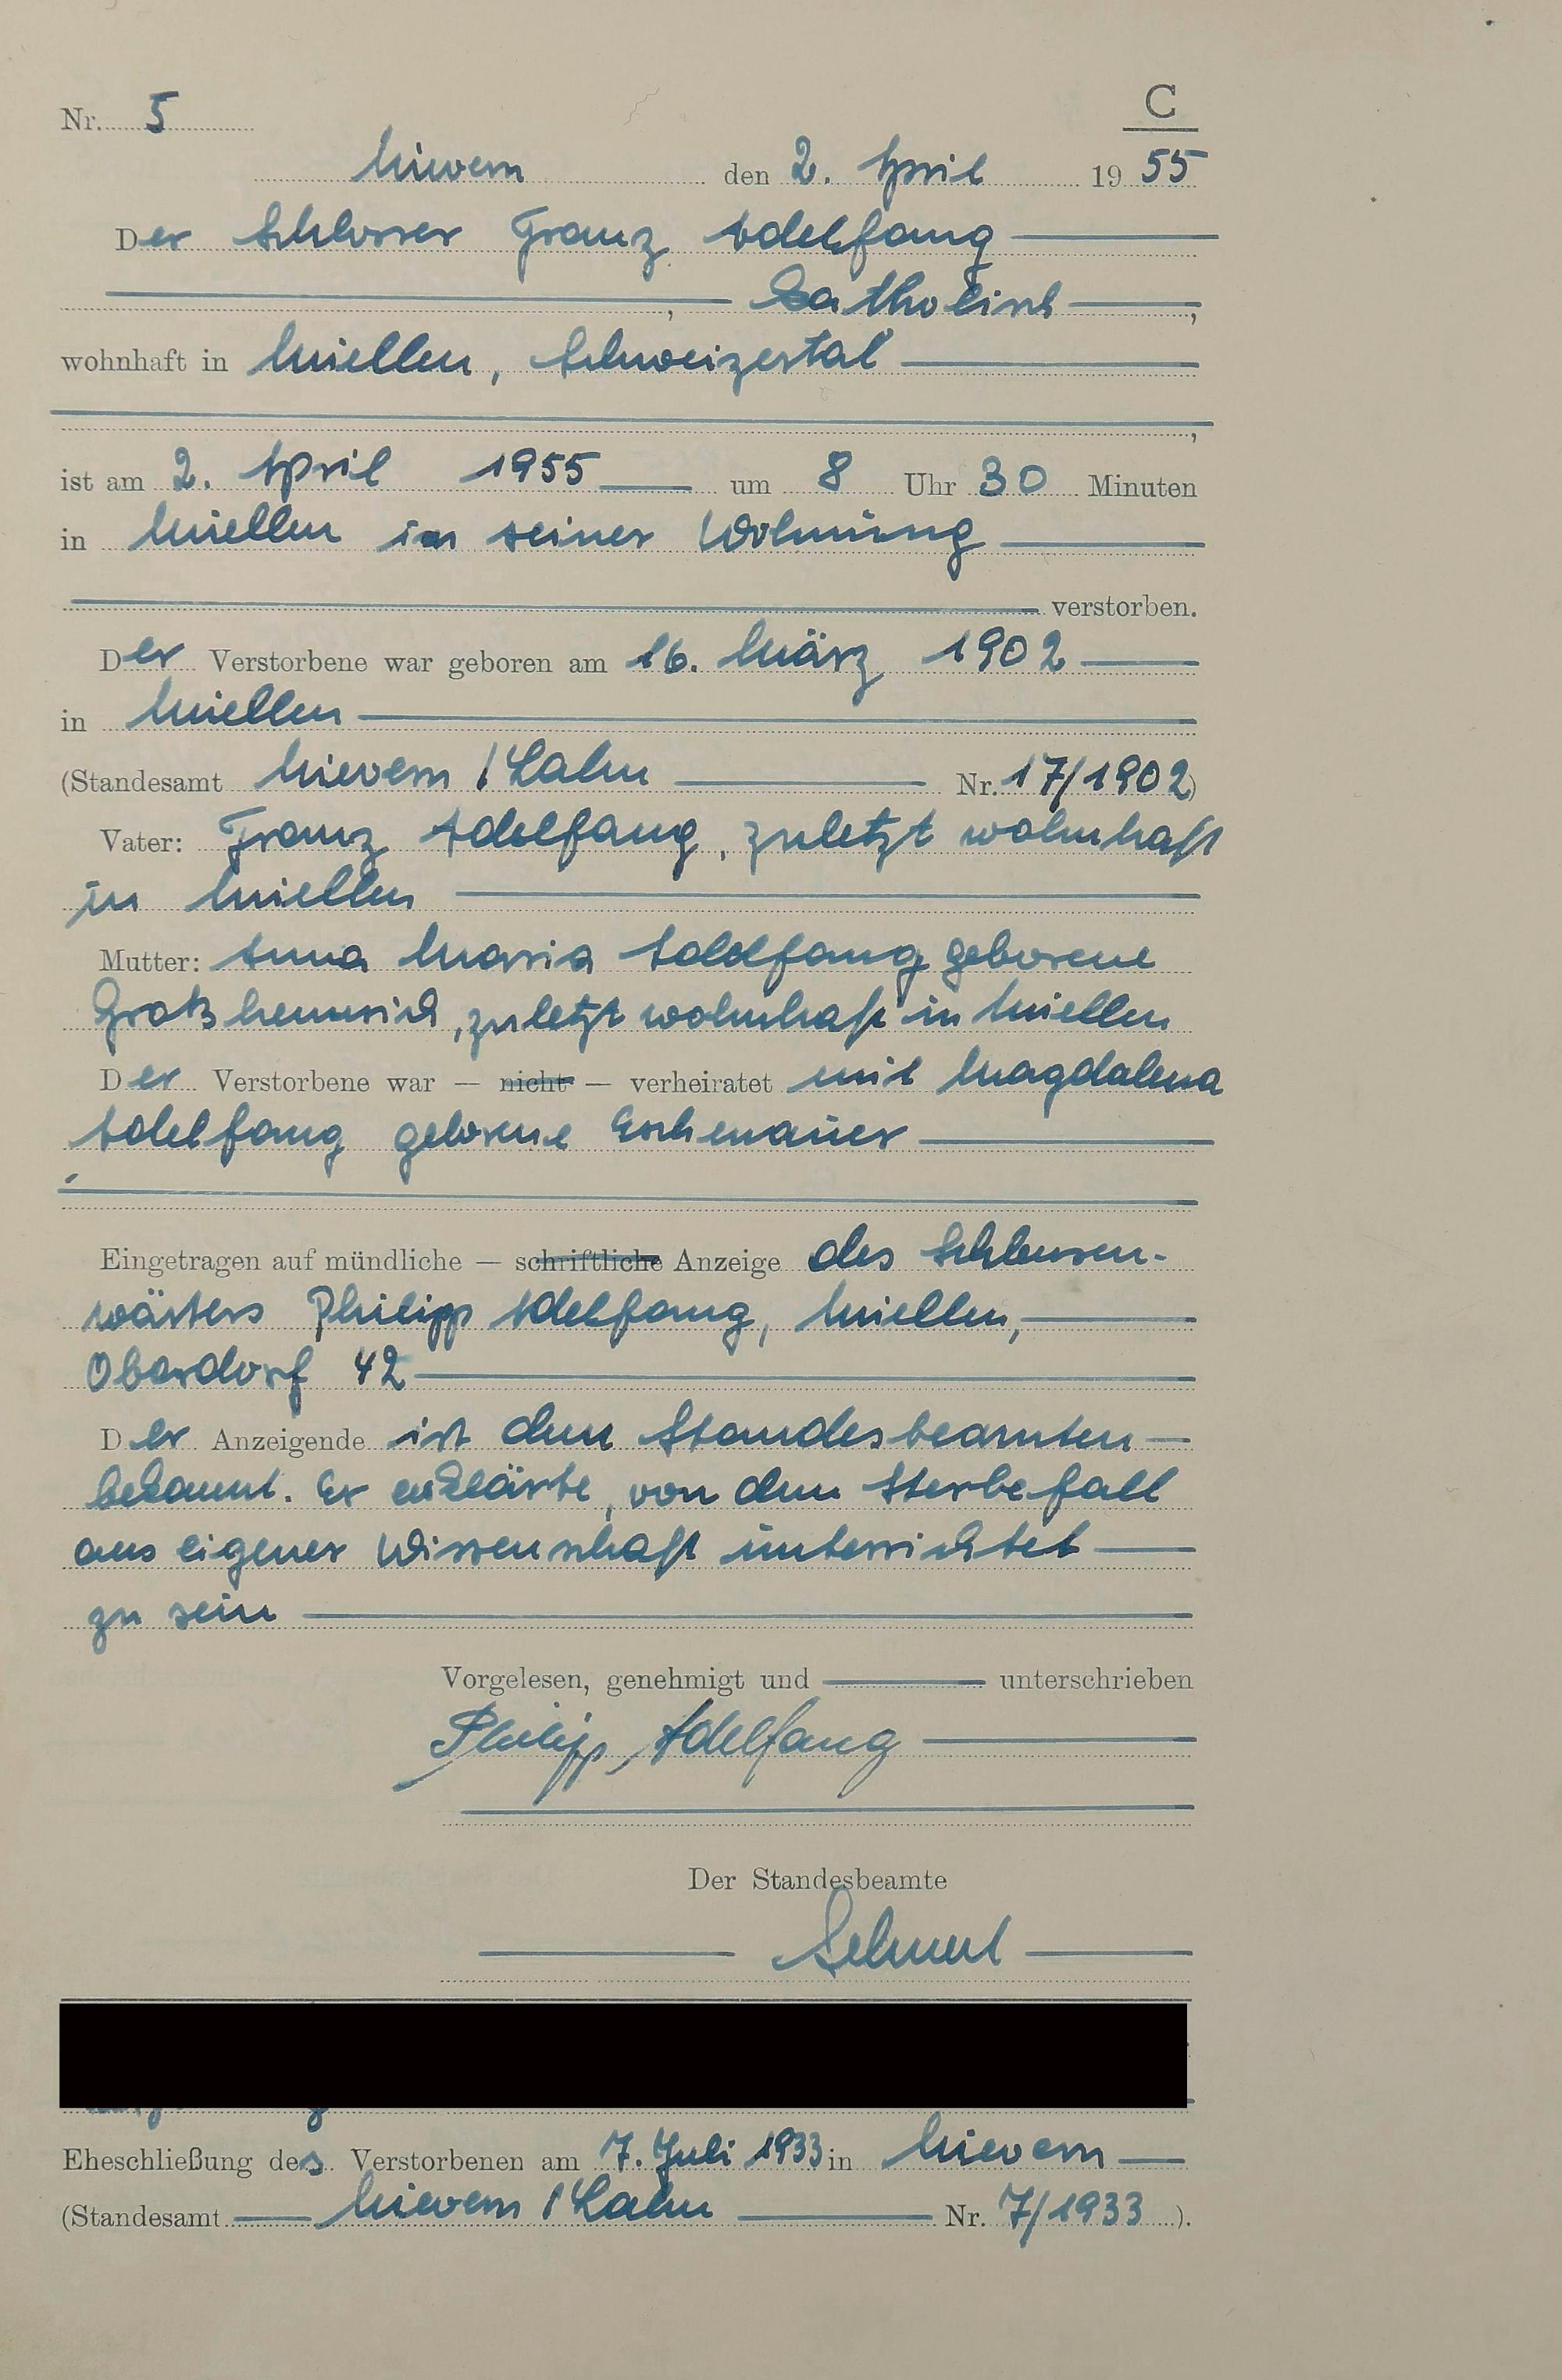 C
Nr. 5
Mievern den 2. April 1955
Der Schlosser Franz Adelfang
, katholisch,
wohnhaft in Miellen, Schweizertal
,
ist am 2. April 1955 um 8 Uhr 30 Minuten
in Miellen in seiner Wohnung
verstorben.
Der Verstorbene war geboren am 16. März 1902
in Miellen
(Standesamt Nievern / Lahn Nr. 17/1902)
Vater: Franz Adelfang, zuletzt wohnhaft
in Miellen
Mutter: Anna Maria Adelfang geborene
zuletzt wohnhaft in Miellen
Der Verstorbene war — nicht — verheiratet mit Magdalena
Adelfang geborene Eschenauer
Eingetragen auf mündliche — schriftliche Anzeige des Schleusen-
wärters Philipp Adelfang, Miellen,
Oberdorf 42
Der Anzeigende ist dem Standesbeamten
bekannt. Er erklärte, von dem Sterbefall
aus eigener Wissenschaft unterrichtet
zu sein
Vorgelesen, genehmigt und unterschrieben
Philipp Adelfang
Der Standesbeamte
Eheschließung des Verstorbenen am 7. Juli 1933 in Nievern
(Standesamt Nievern / Lahn Nr. 7/1933).